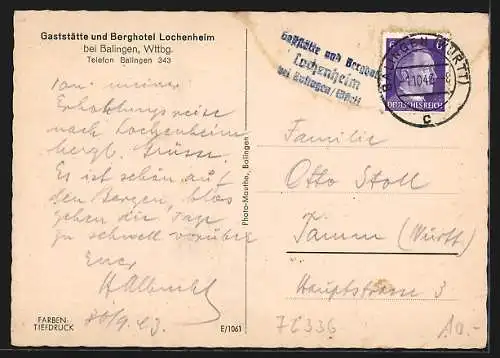 Gaststätte und Berghotel Lochenheim
bei Balingen, Wttbg.
Telefon Balingen 343
Von meiner
Erholungsreise
nach Lochenheim
herzl. Grüsse.
Es ist schön auf
den Bergen, blos
gehen die Tage
zu schnell vorüber
Euer
H Albrecht
30/9.43.
FARBEN-
TIEFDRUCK
E/1061
Photo-Mauthe, Balingen
Gaststätte und Berghotel
Lochenheim
bei Balingen/Württ
BALINGEN (WÜRTT)
c
6
DEUTSCHES REICH
Familie
Otto Stoll
Tamm (Württ)
Hauptstrasse 3
76336
10.-